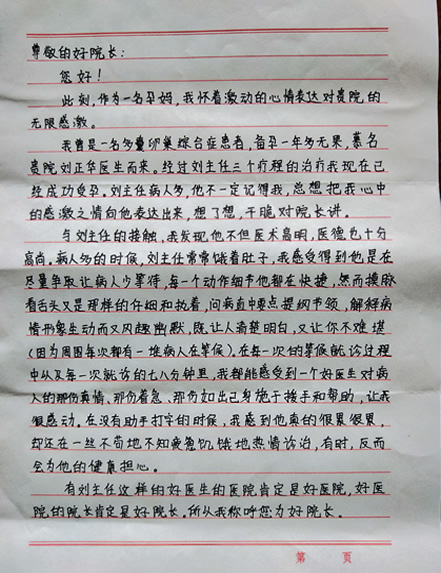 尊敬的好院长：
您好！
此刻，作为一名孕妈，我怀着激动的心情表达对贵院的
无限感激。
我曾是一名多囊卵巢综合症患者，备孕一年多无果，慕名
贵院刘正华医生而来。经过刘主任三个疗程的治疗我现在已
经成功受孕。刘主任病人多，他不一定记得我，总想把我心中
的感激之情向他表达出来，想了想，干脆对院长讲。
与刘主任的接触，我发现他不但医术高明，医德也十分
高尚。病人多的时候，刘主任常常饿着肚子，我感受得到他是在
尽量争取让病人少等待，每一个动作细节他都在快捷，然而摸脉
看舌头又是那样的仔细和执着，问病直中要点提纲节领，解释病
情形象生动而又风趣幽默，既让人清楚明白，又让你不难堪
（因为周围每次都有一堆病人在等候）。在每一次的等候就诊过程
中以及每一次就诊的七八分钟里，我都能感受到一个好医生对病
人的那份真情、那份着急、那份如出己身施于援手和帮助，让我
很感动。在没有助手打字的时候，我感到他真的很累很累，
却还在一丝不苟地不知疲惫饥饿地热情诊治，有时，反而
会为他的健康担心。
有刘主任这样的好医生的医院肯定是好医院，好医
院的院长肯定是好院长。所从我称呼您为好院长。
第 页